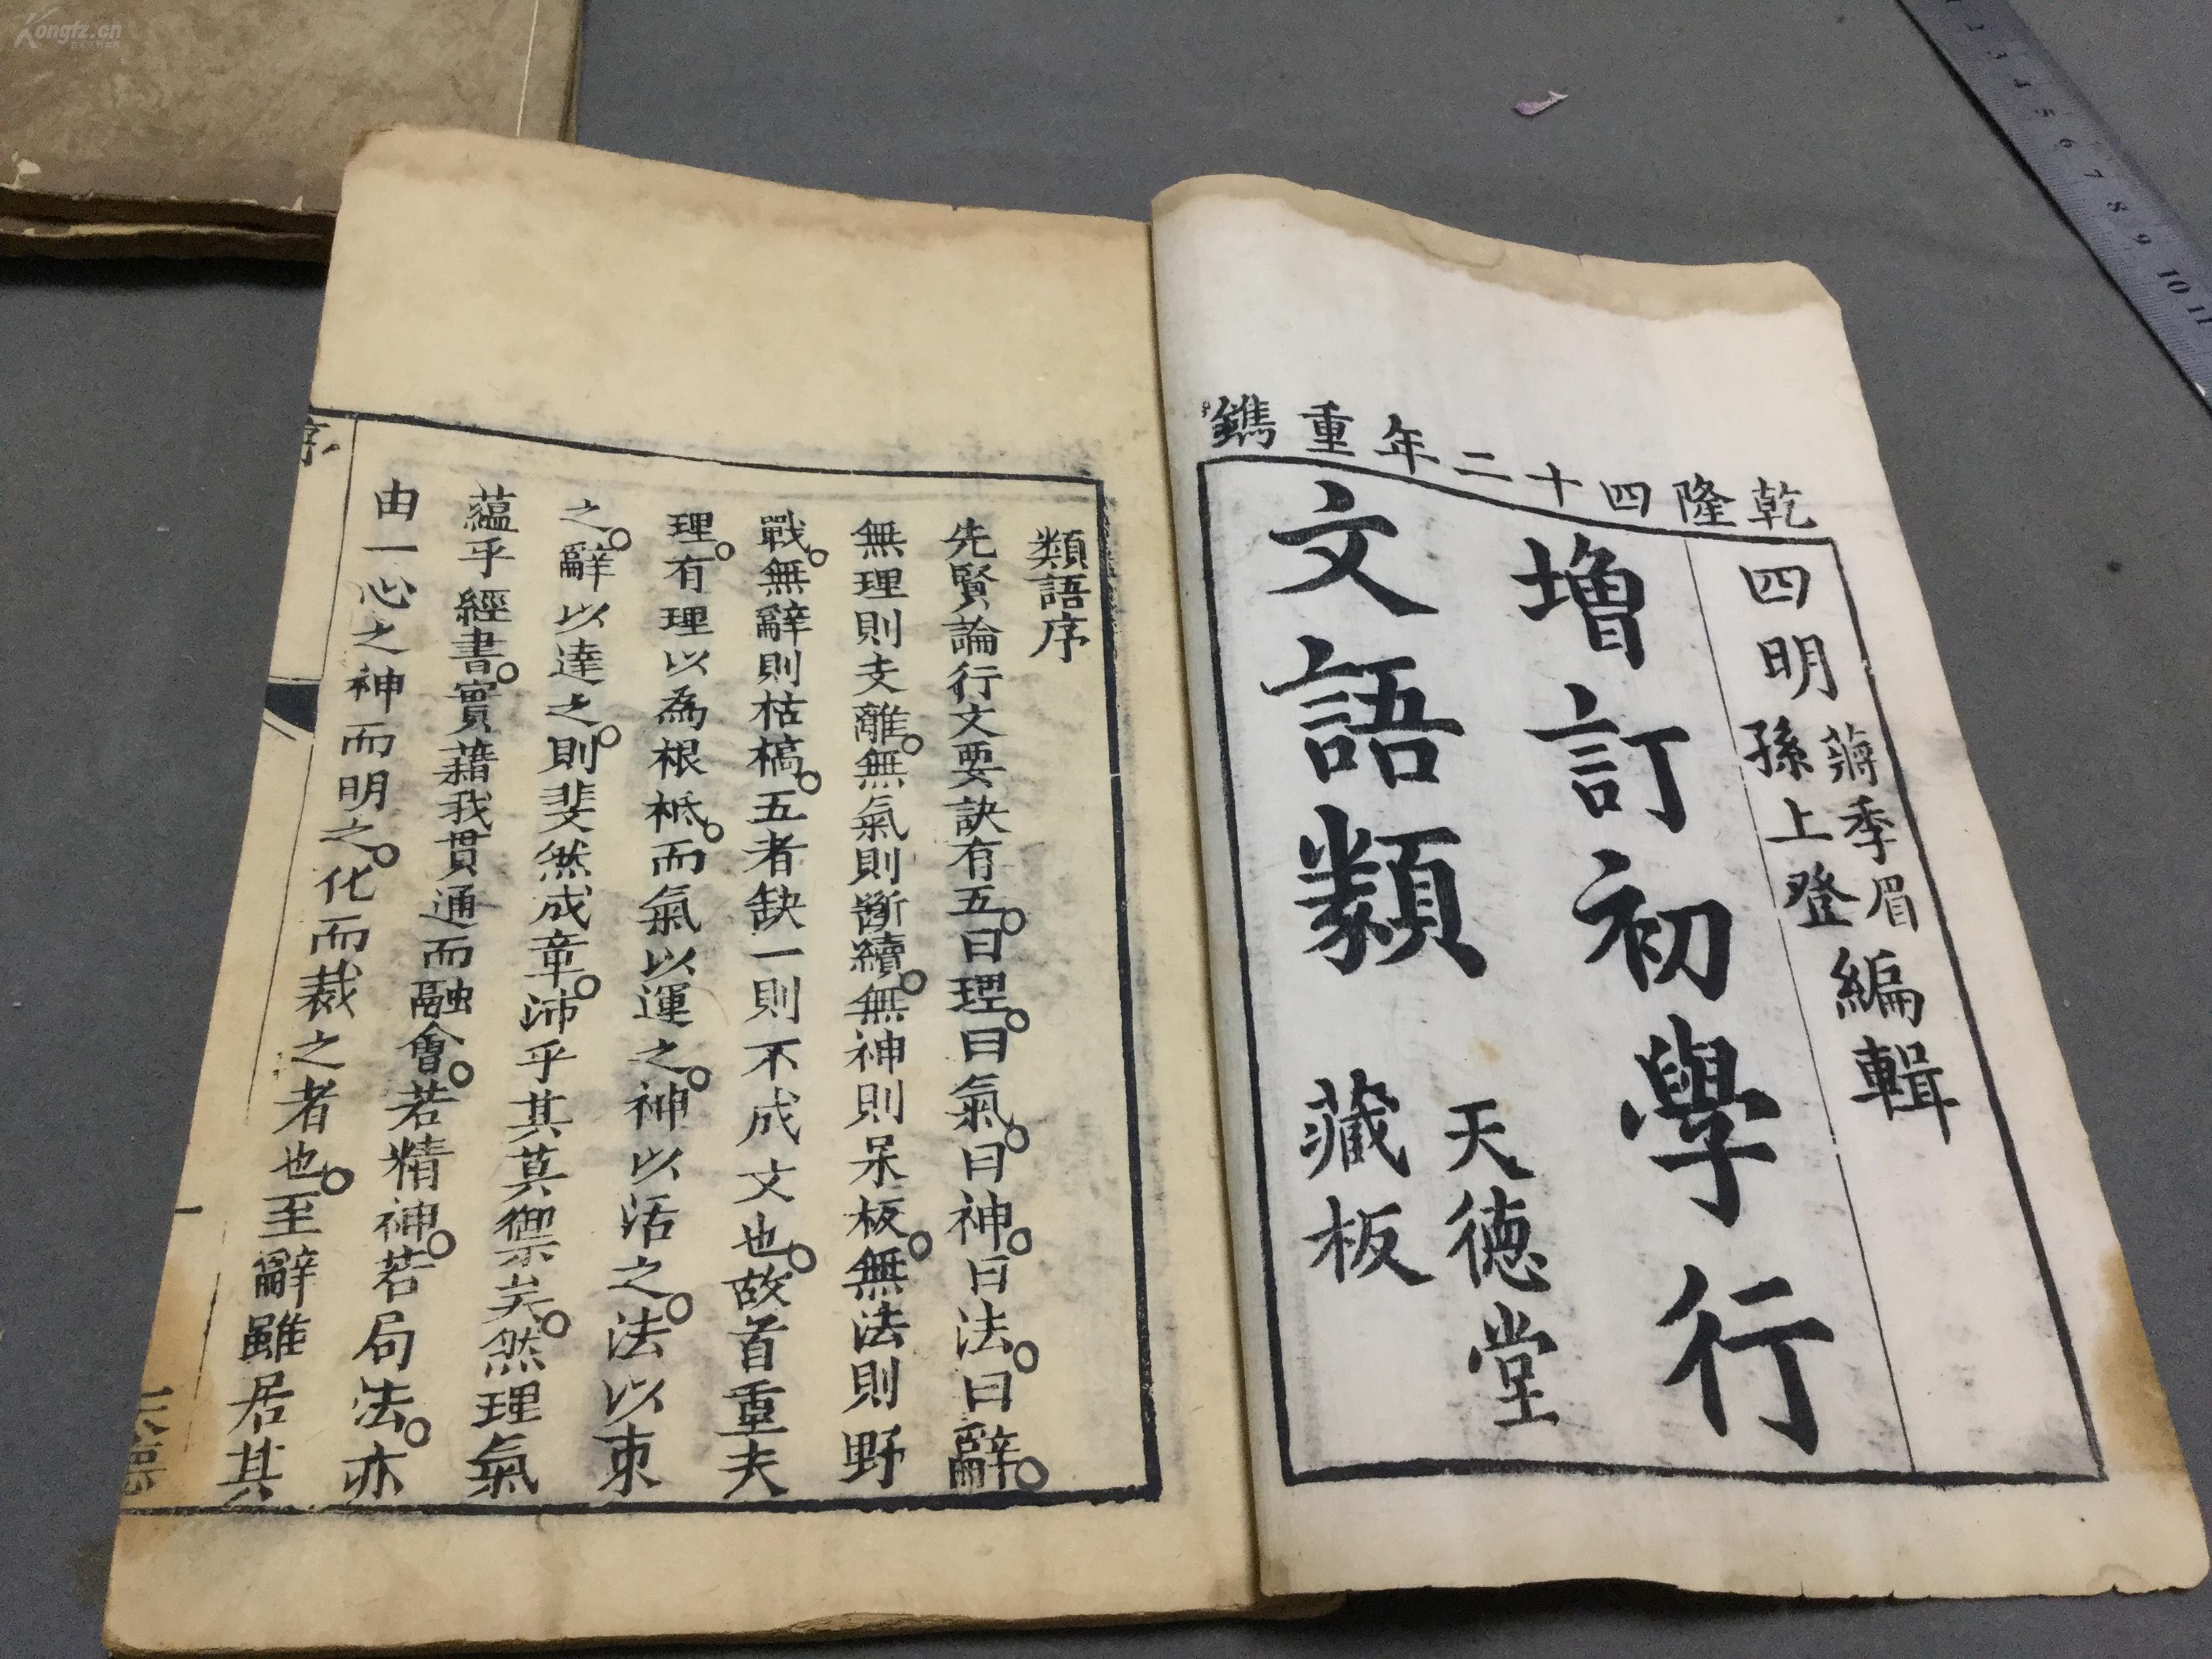 乾隆四十二年重鐫
四明
蔣季眉
孫上登
編輯
增訂初學行
文語類
天德堂
藏板
類語序
先賢論行文要訣有五。曰理。曰氣。曰神。曰法。曰辭。
無理則支離。無氣則斷續。無神則呆板。無法則野
戰。無辭則枯槁。五者缺一則不成文也。故首重夫
理。有理以為根柢。而氣以運之。神以活之。法以束
之。辭以達之。則斐然成章。沛乎其莫禦矣。然理氣
蘊乎經書。實藉我貫通而融會。若精神。若局法。亦
由一心之神而明之。化而裁之者也。至辭雖居其
序
一
Kongfz.cn
1 2 3 4 5 6 7 8 9 10 11